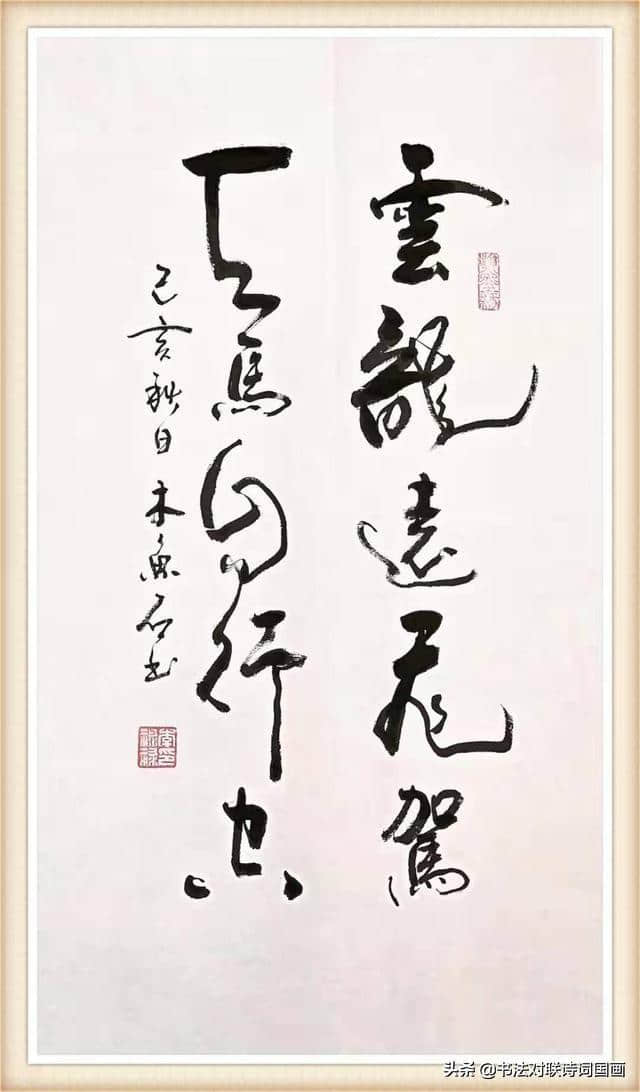 雲龍遠飛駕
天馬自行空
己亥秋日木魚石书
头条 @书法对联诗词国画